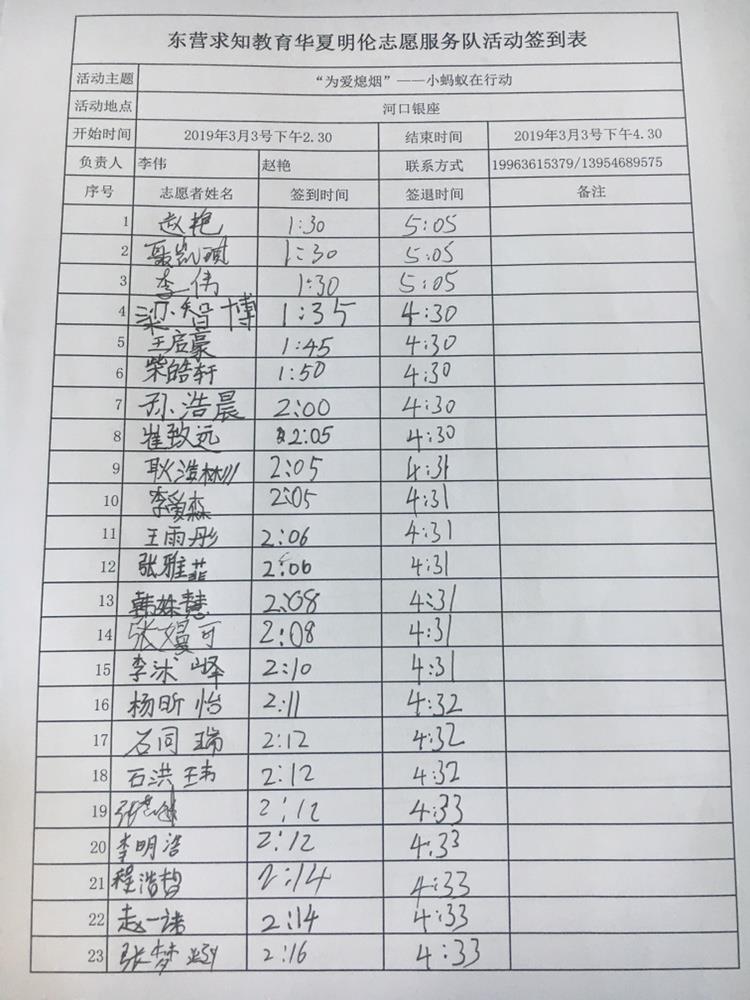 东营求知教育华夏明伦志愿服务队活动签到表
活动主题 “为爱熄烟”——小蚂蚁在行动
活动地点 河口银座
开始时间 2019年3月3号下午2.30 结束时间 2019年3月3号下午4.30
负责人 李伟 赵艳 联系方式 19963615379/13954689575
序号 志愿者姓名 签到时间 签退时间 备注
1 赵艳 1:30 5:05
2 聂凯琪 1:30 5:05
3 李伟 1:30 5:05
4 梁智博 1:35 4:30
5 王启豪 1:45 4:30
6 柴皓轩 1:50 4:30
7 孙浩晨 2:00 4:30
8 崔致远 2:05 4:30
9 耿浩 2:05 4:31
10 李爱森 2:05 4:31
11 王雨彤 2:06 4:31
12 张雅菲 2:06 4:31
13 韩姝慧 2:08 4:31
14 张嫚可 2:08 4:31
15 李沭峄 2:10 4:31
16 杨昕怡 2:11 4:32
17 石同瑞 2:12 4:32
18 石洪玮 2:12 4:32
19 张 2:12 4:33
20 李明浩 2:12 4:33
21 程浩哲 2:14 4:33
22 赵一诺 2:14 4:33
23 张梦 2:16 4:33